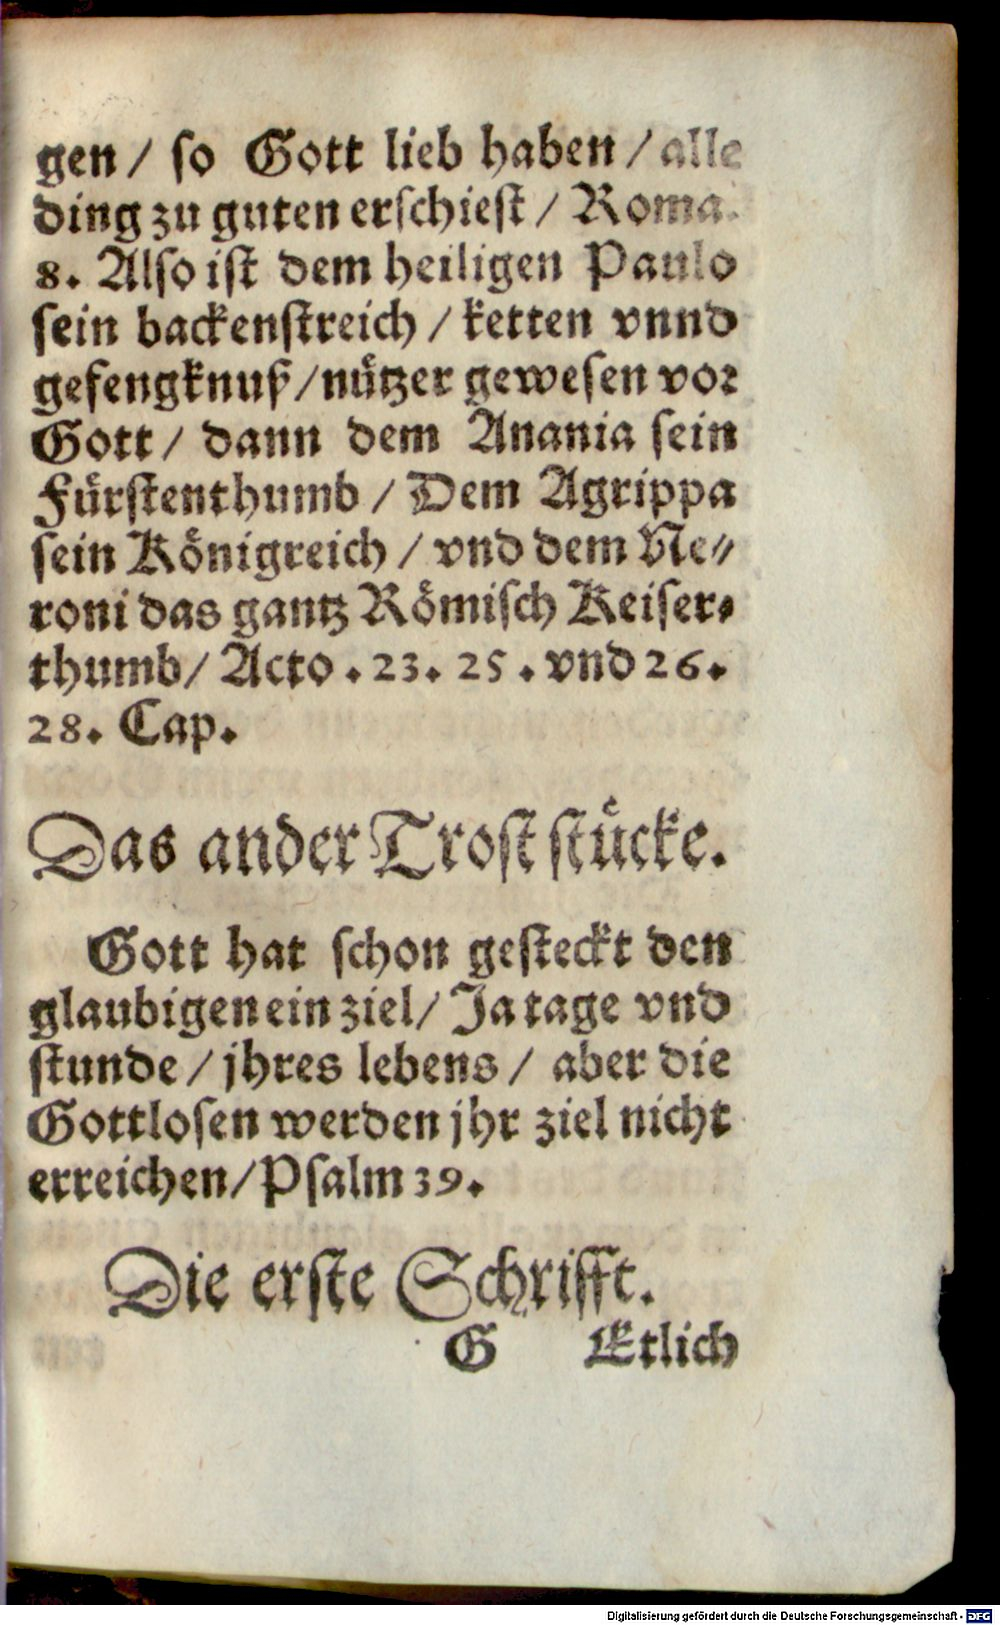 gen / so Gott lieb haben / alle
ding zu guten erschiest / Roma.
8. Also ist dem heiligen Paulo
sein backenstreich / ketten vnnd
gefengknuß / nützer gewesen vor
Gott / dann dem Anania sein
Fürstenthumb / Dem Agrippa
sein Königreich / vnd dem Ne⸗
roni das gantz Römisch Keiser⸗
thumb / Acto . 23. 25 . vnd 26.
28. Cap.
Das ander Trost stücke.
Gott hat schon gesteckt den
glaubigen ein ziel / Ja tage vnd
stunde / jhres lebens / aber die
Gottlosen werden jhr ziel nicht
erreichen / Psalm 39.
Die erste Schrifft.
G Etlich
Digitalisierung gefördert durch die Deutsche Forschungsgemeinschaft - DFG